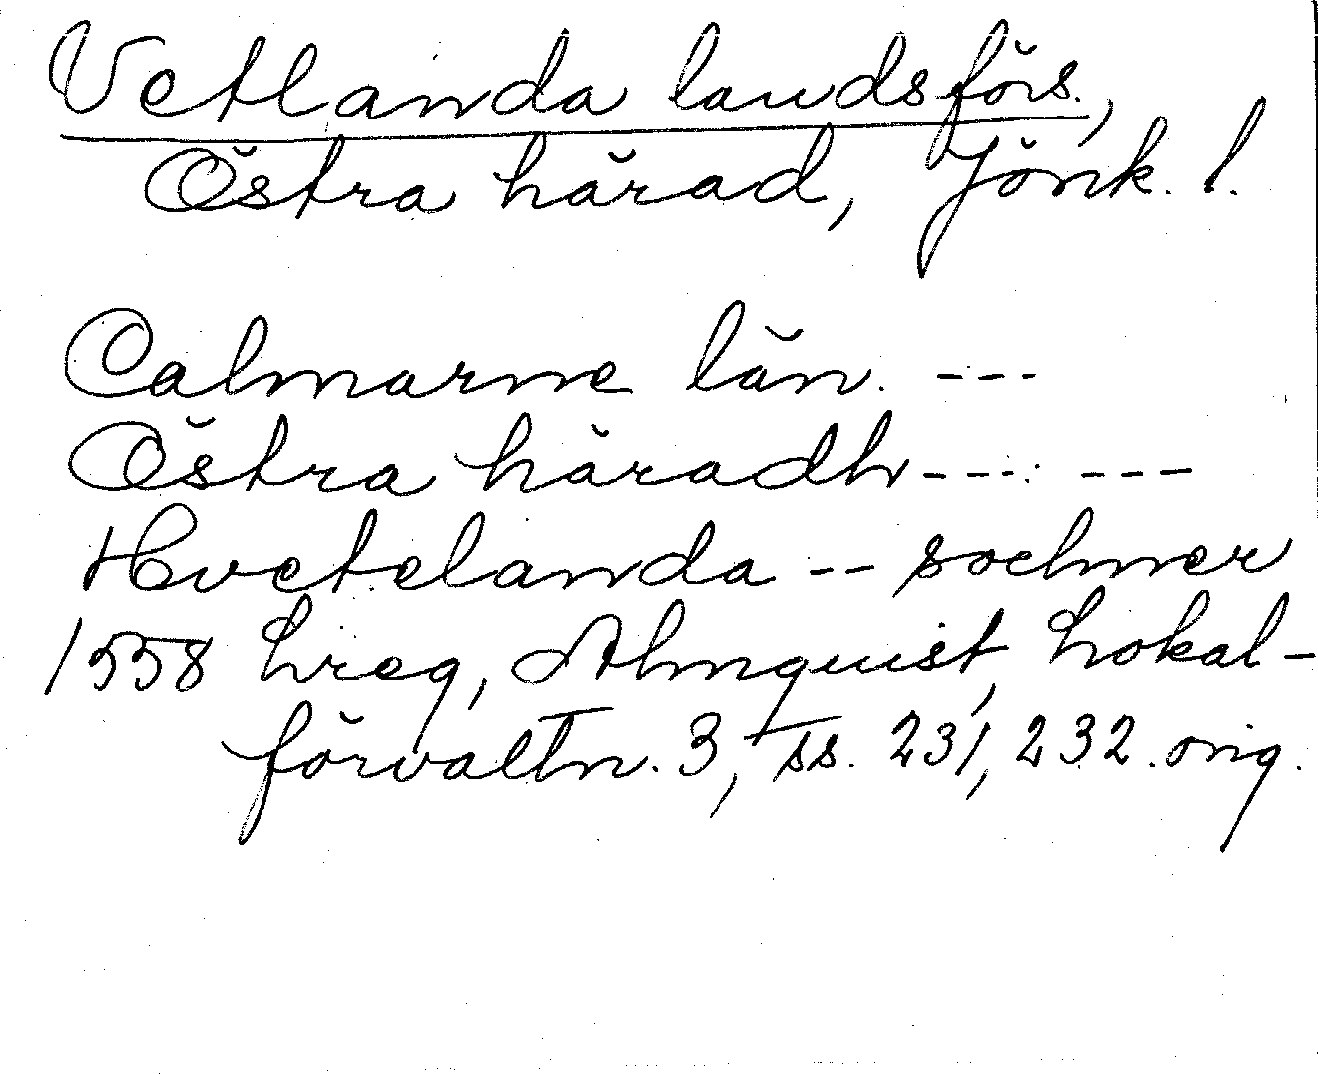 Vetlanda landsförs.,
Östra härad, Jönk. l.
Calmarne län. ---
Östra häradh --- ---
Hvetelanda -- sochner
1558 Lreg, Almquist, Lokal-
förvaltn. 3, ss. 231, 232. orig.